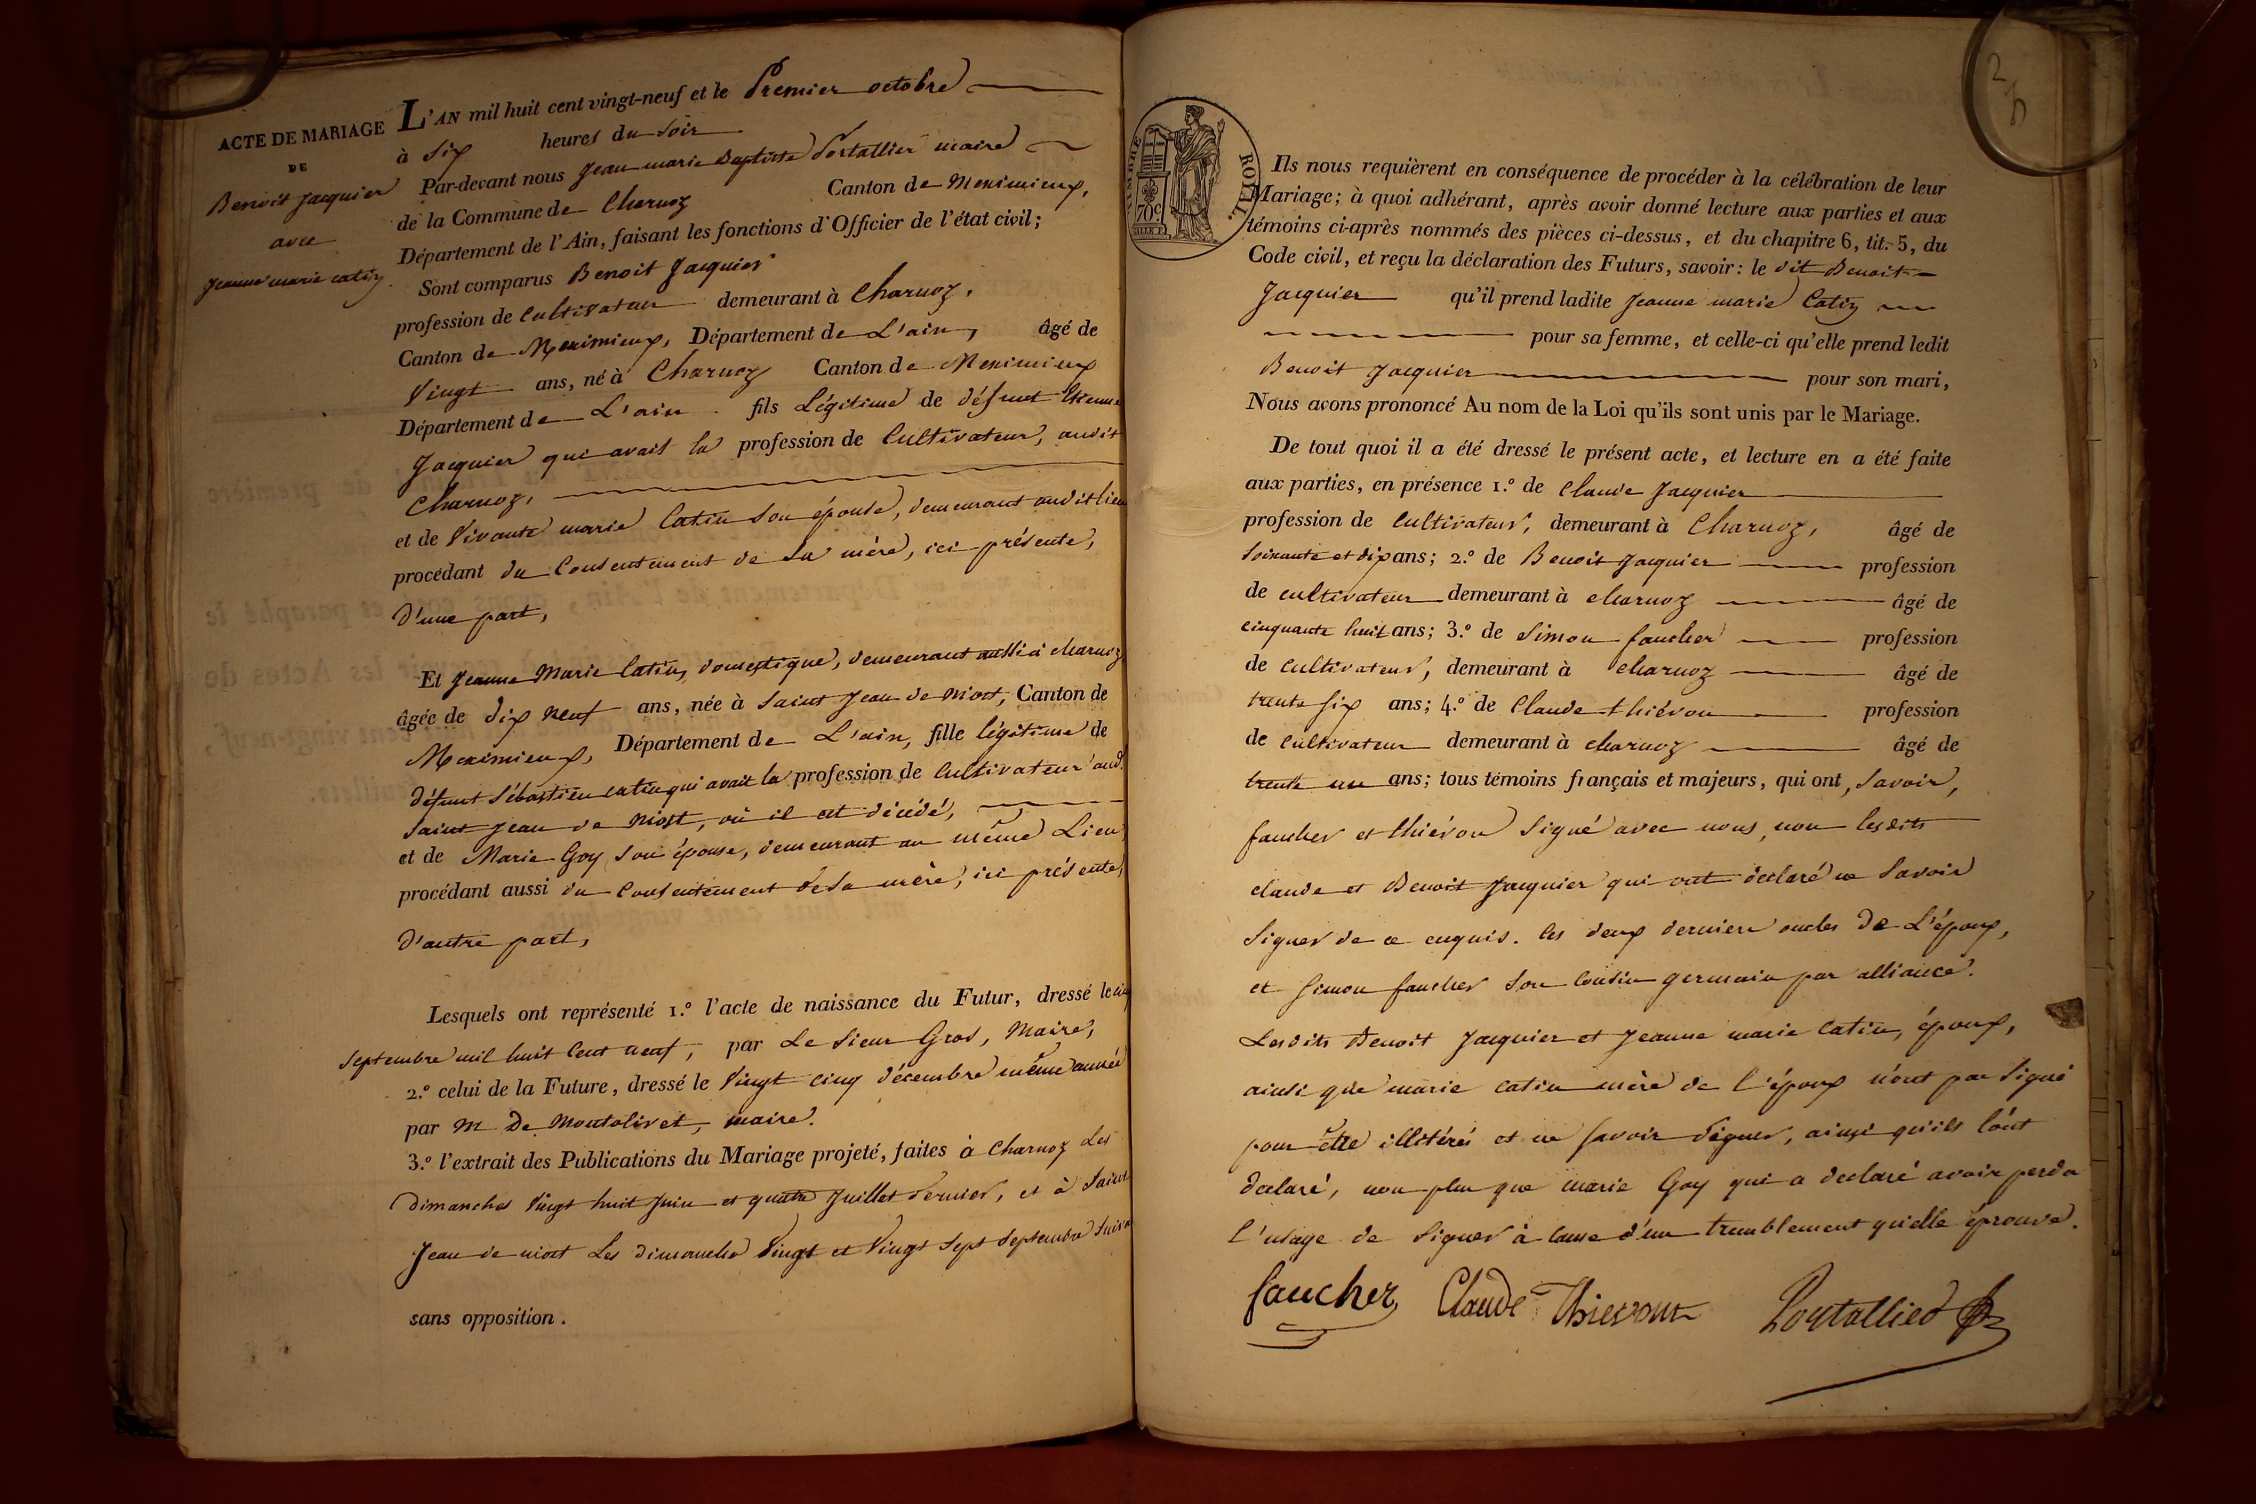 ACTE DE MARIAGE
DE
Benoit Jacquier
avec
Jeanne marie Catin
L'AN mil huit cent vingt-neuf et le Premier octobre
à six heures du soir
Par-devant nous Jean marie Baptiste Portallier maire
de la Commune de Charnoz Canton de Meximieux,
Département de l'Ain, faisant les fonctions d'Officier de l'état civil;
Sont comparus Benoit Jacquier
profession de Cultivateur demeurant à Charnoz,
Canton de Meximieux, Département de L'ain, âgé de
Vingt ans, né à Charnoz Canton de Meximieux
Département de L'ain. fils Légitime de défunt Etienne
Jacquier qui avait la profession de Cultivateur, audit
Charnoz,
et de Vivante marie Catin son épouse, demeurant audit lieu
procédant du Consentement de sa mère, ici présente,
d'une part,
Et Jeanne Marie Catin, domestique, demeurant aussi à charnoz
âgée de dix neuf ans, née à Saint Jean de Niost, Canton de
Meximieux, Département de L'ain, fille légitime de
défunt Sébastien catin qui avait la profession de Cultivateur aud.
Saint Jean de Niost, où il est décédé,
et de Marie Goy son épouse, demeurant au même Lieu,
procédant aussi du Consentement de sa mère, ici présente,
d'autre part,
Lesquels ont représenté 1.º l'acte de naissance du Futur, dressé le
septembre mil huit Cent neuf, par Le Sieur Gros, Maire,
2.º celui de la Future, dressé le Vingt cinq décembre même année
par M De Montolivet, maire.
3.º l'extrait des Publications du Mariage projeté, faites à Charnoz Les
dimanches Vingt huit Juin et quatre Juillet dernier, et à Saint
Jean de niost Les dimanches Vingt et Vingt Sept Septembre
sans opposition.
2
TIMBRE ROYAL.
70c.
Ils nous requièrent en conséquence de procéder à la célébration de leur
Mariage; à quoi adhérant, après avoir donné lecture aux parties et aux
témoins ci-après nommés des pièces ci-dessus, et du chapitre 6, tit. 5, du
Code civil, et reçu la déclaration des Futurs, savoir: le dit Benoit
Jacquier qu'il prend ladite Jeanne marie Catin
pour sa femme, et celle-ci qu'elle prend ledit
Benoit Jacquier pour son mari,
Nous avons prononcé Au nom de la Loi qu'ils sont unis par le Mariage.
De tout quoi il a été dressé le présent acte, et lecture en a été faite
aux parties, en présence 1.º de Claude Jacquier
profession de Cultivateur, demeurant à Charnoz, âgé de
soixante et dix ans; 2.º de Benoit Jacquier profession
de cultivateur demeurant à charnoz âgé de
cinquante huit ans; 3.º de Simon faucher profession
de Cultivateur, demeurant à charnoz âgé de
trente six ans; 4.º de Claude thiévon profession
de Cultivateur demeurant à charnoz âgé de
trente un ans; tous témoins français et majeurs, qui ont, Savoir,
faucher et thiévon Signé avec nous, non lesdits
claude et Benoit Jacquier qui ont déclaré ne Savoir
Signer de ce enquis. les deux derniers oncles de L'époux,
et Simon faucher Son Cousin germain par alliance.
Lesdits Benoit Jacquier et Jeanne marie Catin, époux,
ainsi que marie catin mère de l'époux n'ont pas signé
pour être illitérés et ne savoir signer, ainsi qu'ils l'ont
declaré, non plus que marie Goy qui a declaré avoir perdu
l'usage de Signer à cause d'un tremblement qu'elle éprouve.
faucher Claude Thievont Portallier